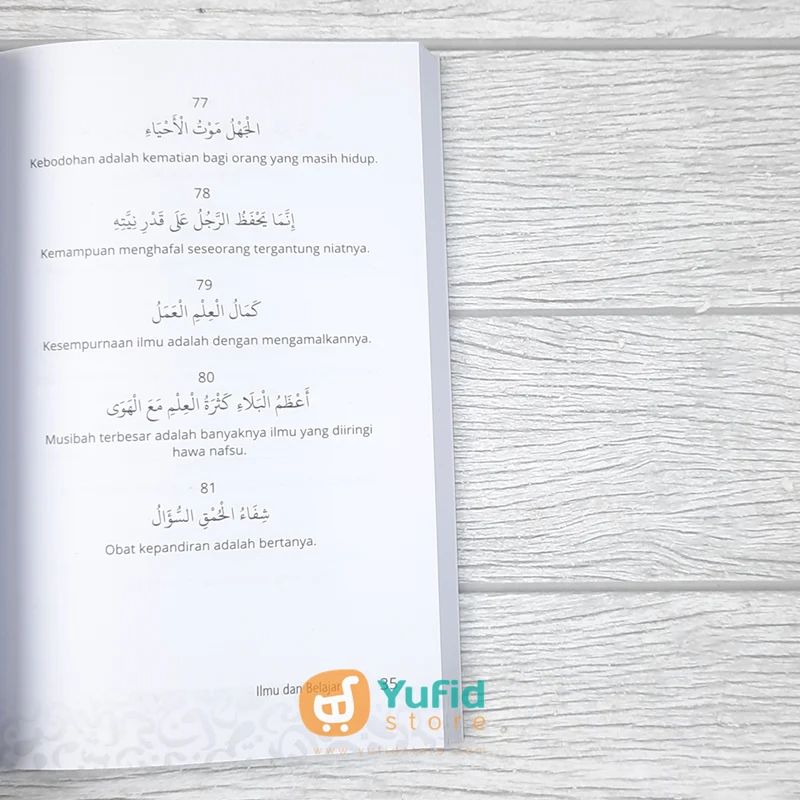 77
الْجَهْلُ مَوْتُ الْأَحْيَاءِ
Kebodohan adalah kematian bagi orang yang masih hidup.
78
إِنَّمَا يَحْفَظُ الرَّجُلُ عَلَى قَدْرِ نِيَّتِهِ
Kemampuan menghafal seseorang tergantung niatnya.
79
كَمَالُ الْعِلْمِ الْعَمَلُ
Kesempurnaan ilmu adalah dengan mengamalkannya.
80
أَعْظَمُ الْبَلَاءِ كَثْرَةُ الْعِلْمِ مَعَ الْهَوَى
Musibah terbesar adalah banyaknya ilmu yang diiringi
hawa nafsu.
81
شِفَاءُ الْحُمْقِ السُّؤَالُ
Obat kepandiran adalah bertanya.
Ilmu dan Belajar 35
Yufid
store
www.yufidstore.com